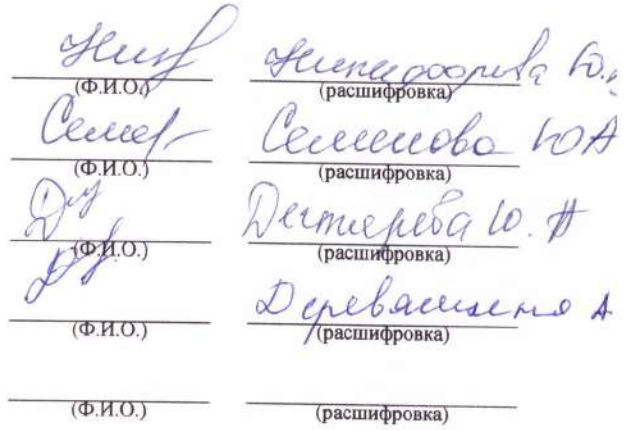 Никифорова Ю.
(Ф.И.О.) (расшифровка)
Семенова ЮА
(Ф.И.О.) (расшифровка)
Дегтерева Ю. А
(Ф.И.О.) (расшифровка)
А
(Ф.И.О.) (расшифровка)
(Ф.И.О.) (расшифровка)